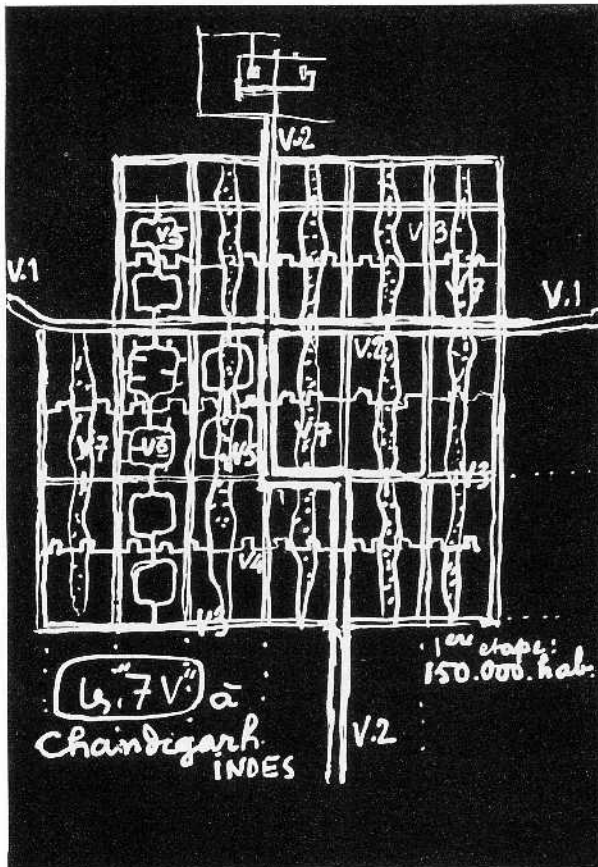 V.2
V5
V3
V.1
V7
V.1
V.2
V7
V6
V5
V7
V3
V4
V3
1ere etape:
150.000.hab.
les "7V" à
Chandigarh
INDES
V.2